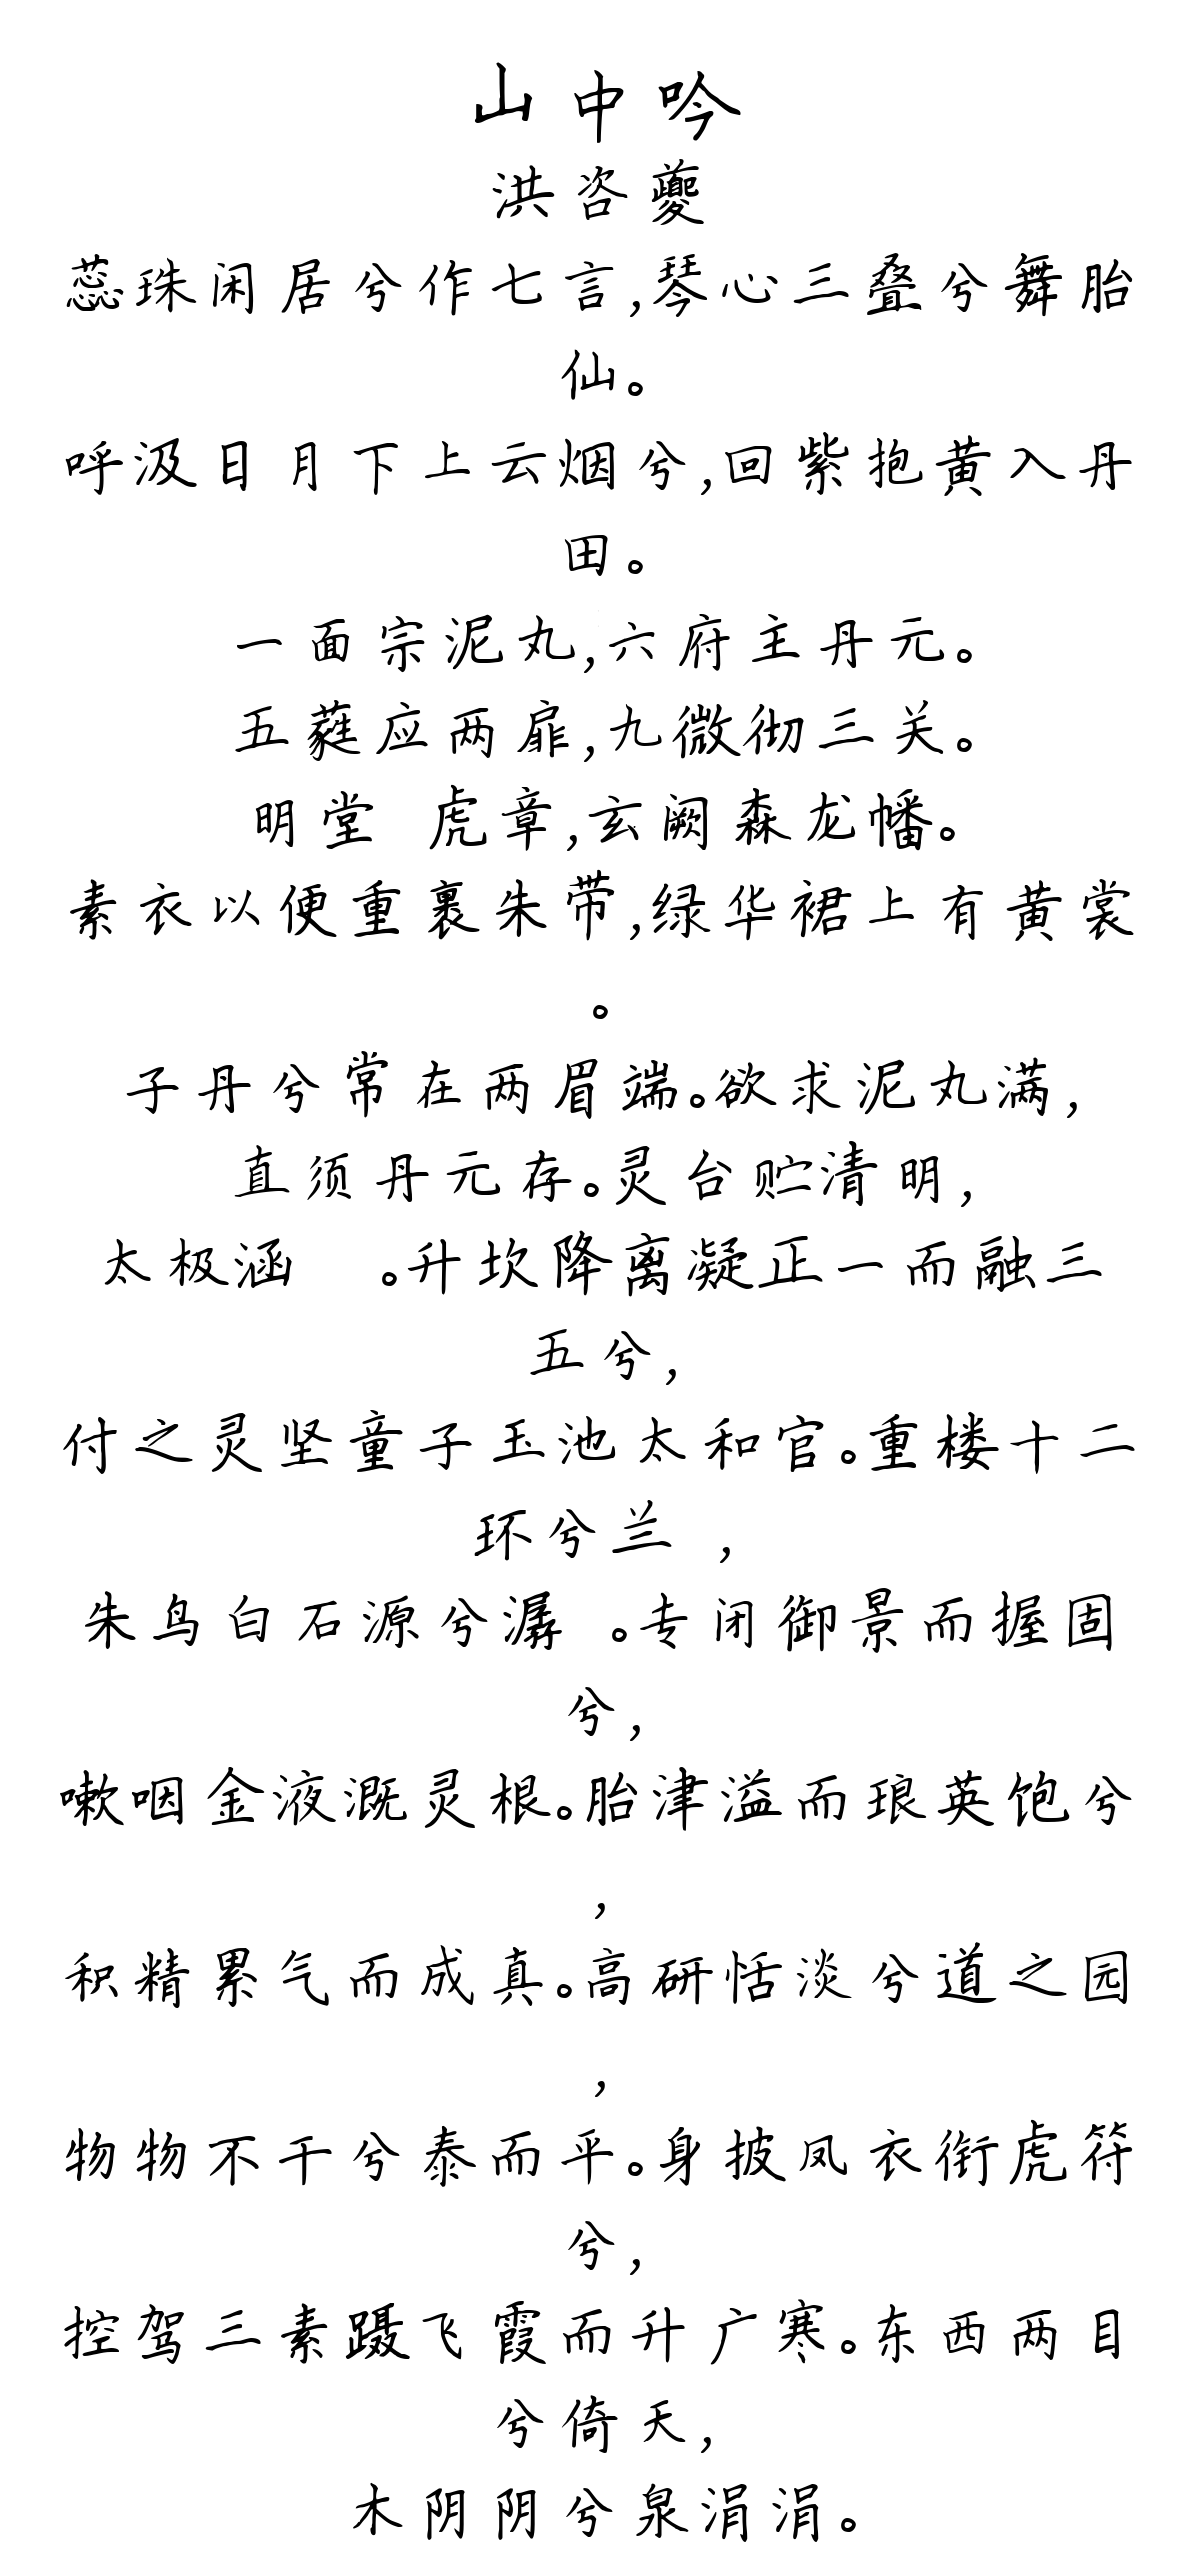 山中吟
洪咨夔
蕊珠闲居兮作七言,琴心三叠兮舞胎
仙。
呼汲日月下上云烟兮,回紫抱黄入丹
田。
一面宗泥丸,六府主丹元。
五蕤应两扉,九微彻三关。
明堂 虎章,玄阙森龙幡。
素衣以便重裹朱带,绿华裙上有黄裳
。
子丹兮常在两眉端。欲求泥丸满,
直须丹元存。灵台贮清明,
太极涵 。升坎降离凝正一而融三
五兮,
付之灵坚童子玉池太和官。重楼十二
环兮兰 ,
朱鸟白石源兮潺 。专闭御景而握固
兮,
嗽咽金液溉灵根。胎津溢而琅英饱兮
,
积精累气而成真。高研恬淡兮道之园
,
物物不干兮泰而平。身披凤衣衔虎符
兮,
控驾三素蹑飞霞而升广寒。东西两目
兮倚天,
木阴阴兮泉涓涓。